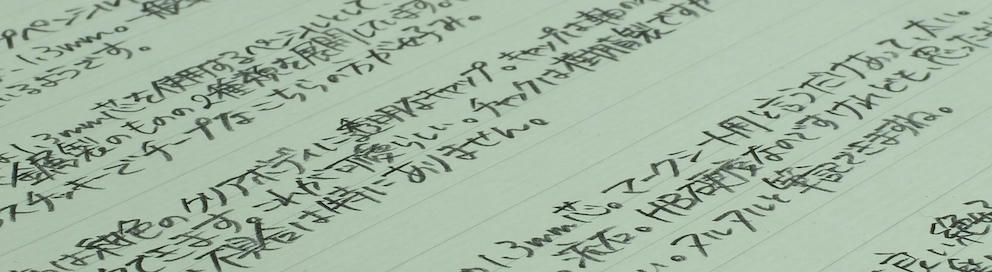 プペンシル
1.3mm。一般
るようです。
しい3mm芯を使用するペンシルとして、
金属製のものの2種類を展開しています。
スチッキーでチープなこちらの方が好み。
は紺色のクリアボディに透明なキャップ。キャップは軸の
できます。これが可愛らしい。チャックは樹脂製ですが
不具合は特にありません。
1.3mm芯。マークシート用と言うだけあって、太い。
HB硬度なのですけれども思ったよ
い。ヌルヌルと筆記できますね。